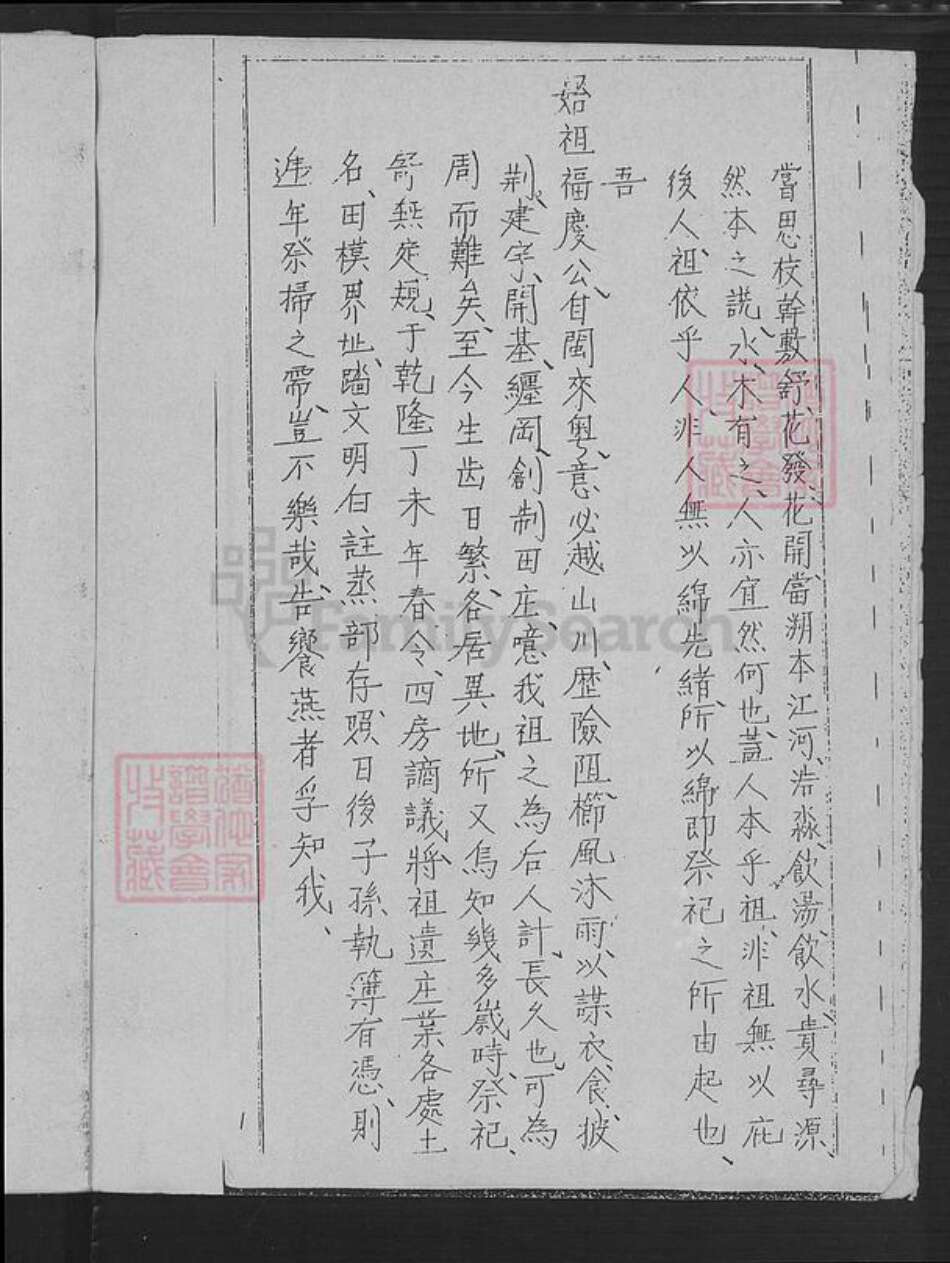 嘗思枝幹敷舒、花發花開、當朔本江河、浩淼、飲湯飲水、貴尋源、
然本之説、水、木有之、人亦宜然何也、蓋人本乎祖、非祖無以庇
後人、祖依乎人、非人無以綿先緒、所以綿即祭祀之所由起也、
吾
始祖福慶公、自閩來粵、意必越山川、歷險阻、櫛風沐雨、以謀衣食、披
荆、建字、開基、纒岡、創制田庄、噫我祖之為后人計、長久也、可為
周而難矣、至今生齿日繁、各居異地、所又烏知幾多歲時、祭祀、
舒無定規、于乾隆丁未年春令、四房謫議、將祖遺庄業各處土
名、田模界址、踏文明白註蒸部存照、日後子孫、執簿有憑、則
逓年祭掃之需、豈不樂哉、告饗燕者孚知我、
1
FamilySearch
譜學會
收藏
譜學會
收藏